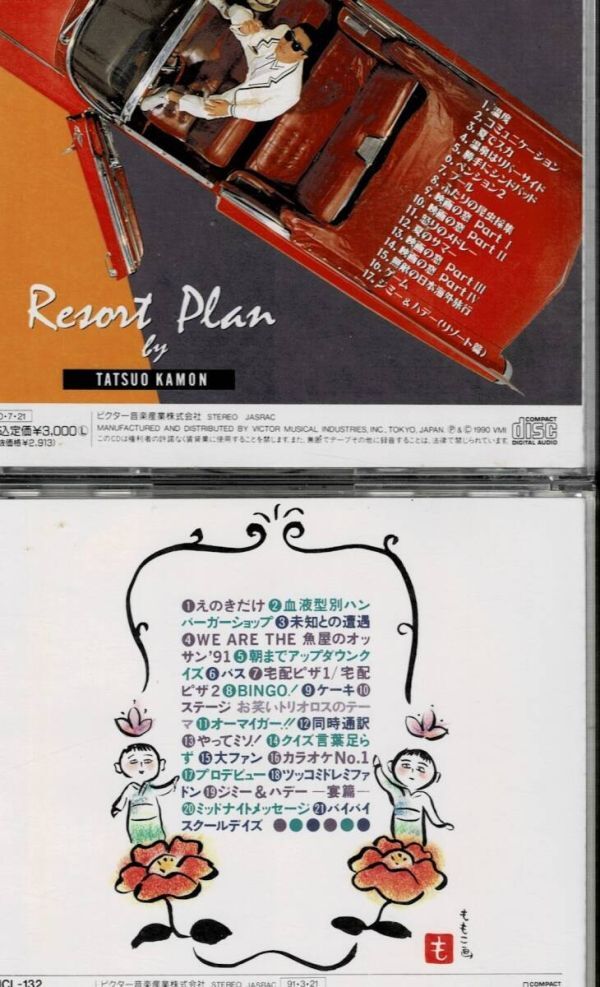 1. 温度
2. コミュニケーション
3. 夏でスカ
4. 温泉はリバーサイド
5. 勝手にシンドバッド
6. ペンション2
7. プール
8. ふたりの昆虫採集
9. 映画の窓 Part I
10. 映画の窓 Part II
11. 怒りのメドレー
12. 夏のサマー
13. 映画の窓 Part III
14. 映画の窓 Part IV
15. 無敵の日本海外旅行
16. ゲーム
17. ジミー&ハデー(リゾート篇)
Resort Plan
by
TATSUO KAMON
・7・21
込定価¥3,000Ⓛ
価格¥2,913)
ビクター音楽産業株式会社 STEREO JASRAC
MANUFACTURED AND DISTRIBUTED BY VICTOR MUSICAL INDUSTRIES, INC., TOKYO, JAPAN. Ⓟ&Ⓒ 1990 VMI
このCDは権利者の許諾なく賃貸業に使用することを禁じます。また、無断でテープその他に録音することは、法律で禁じられています。
COMPACT
disc
DIGITAL AUDIO
❶えのきだけ ❷血液型別ハン
バーガーショップ ❸未知との遭遇
❹WE ARE THE 魚屋のオッ
サン'91 ❺朝までアップダウンク
イズ ❻バス ❼宅配ピザ1/宅配
ピザ2 ❽BINGO! ❾ケーキ ❿
ステージ お笑いトリオロスのテー
マ ⓫オーマイガー!! ⓬同時通訳
⓭やってミソ! ⓮クイズ言葉足ら
ず ⓯大ファン ⓰カラオケNo.1
⓱プロデビュー ⓲ツッコミドレミファ
ドン ⓳ジミー&ハデー ―宴篇―
⓴ミッドナイトメッセージ ㉑バイバイ
スクールデイズ
ももこ画
も
ICL-132
ビクター音楽産業株式会社 STEREO JASRAC 91・3・21
COMPACT